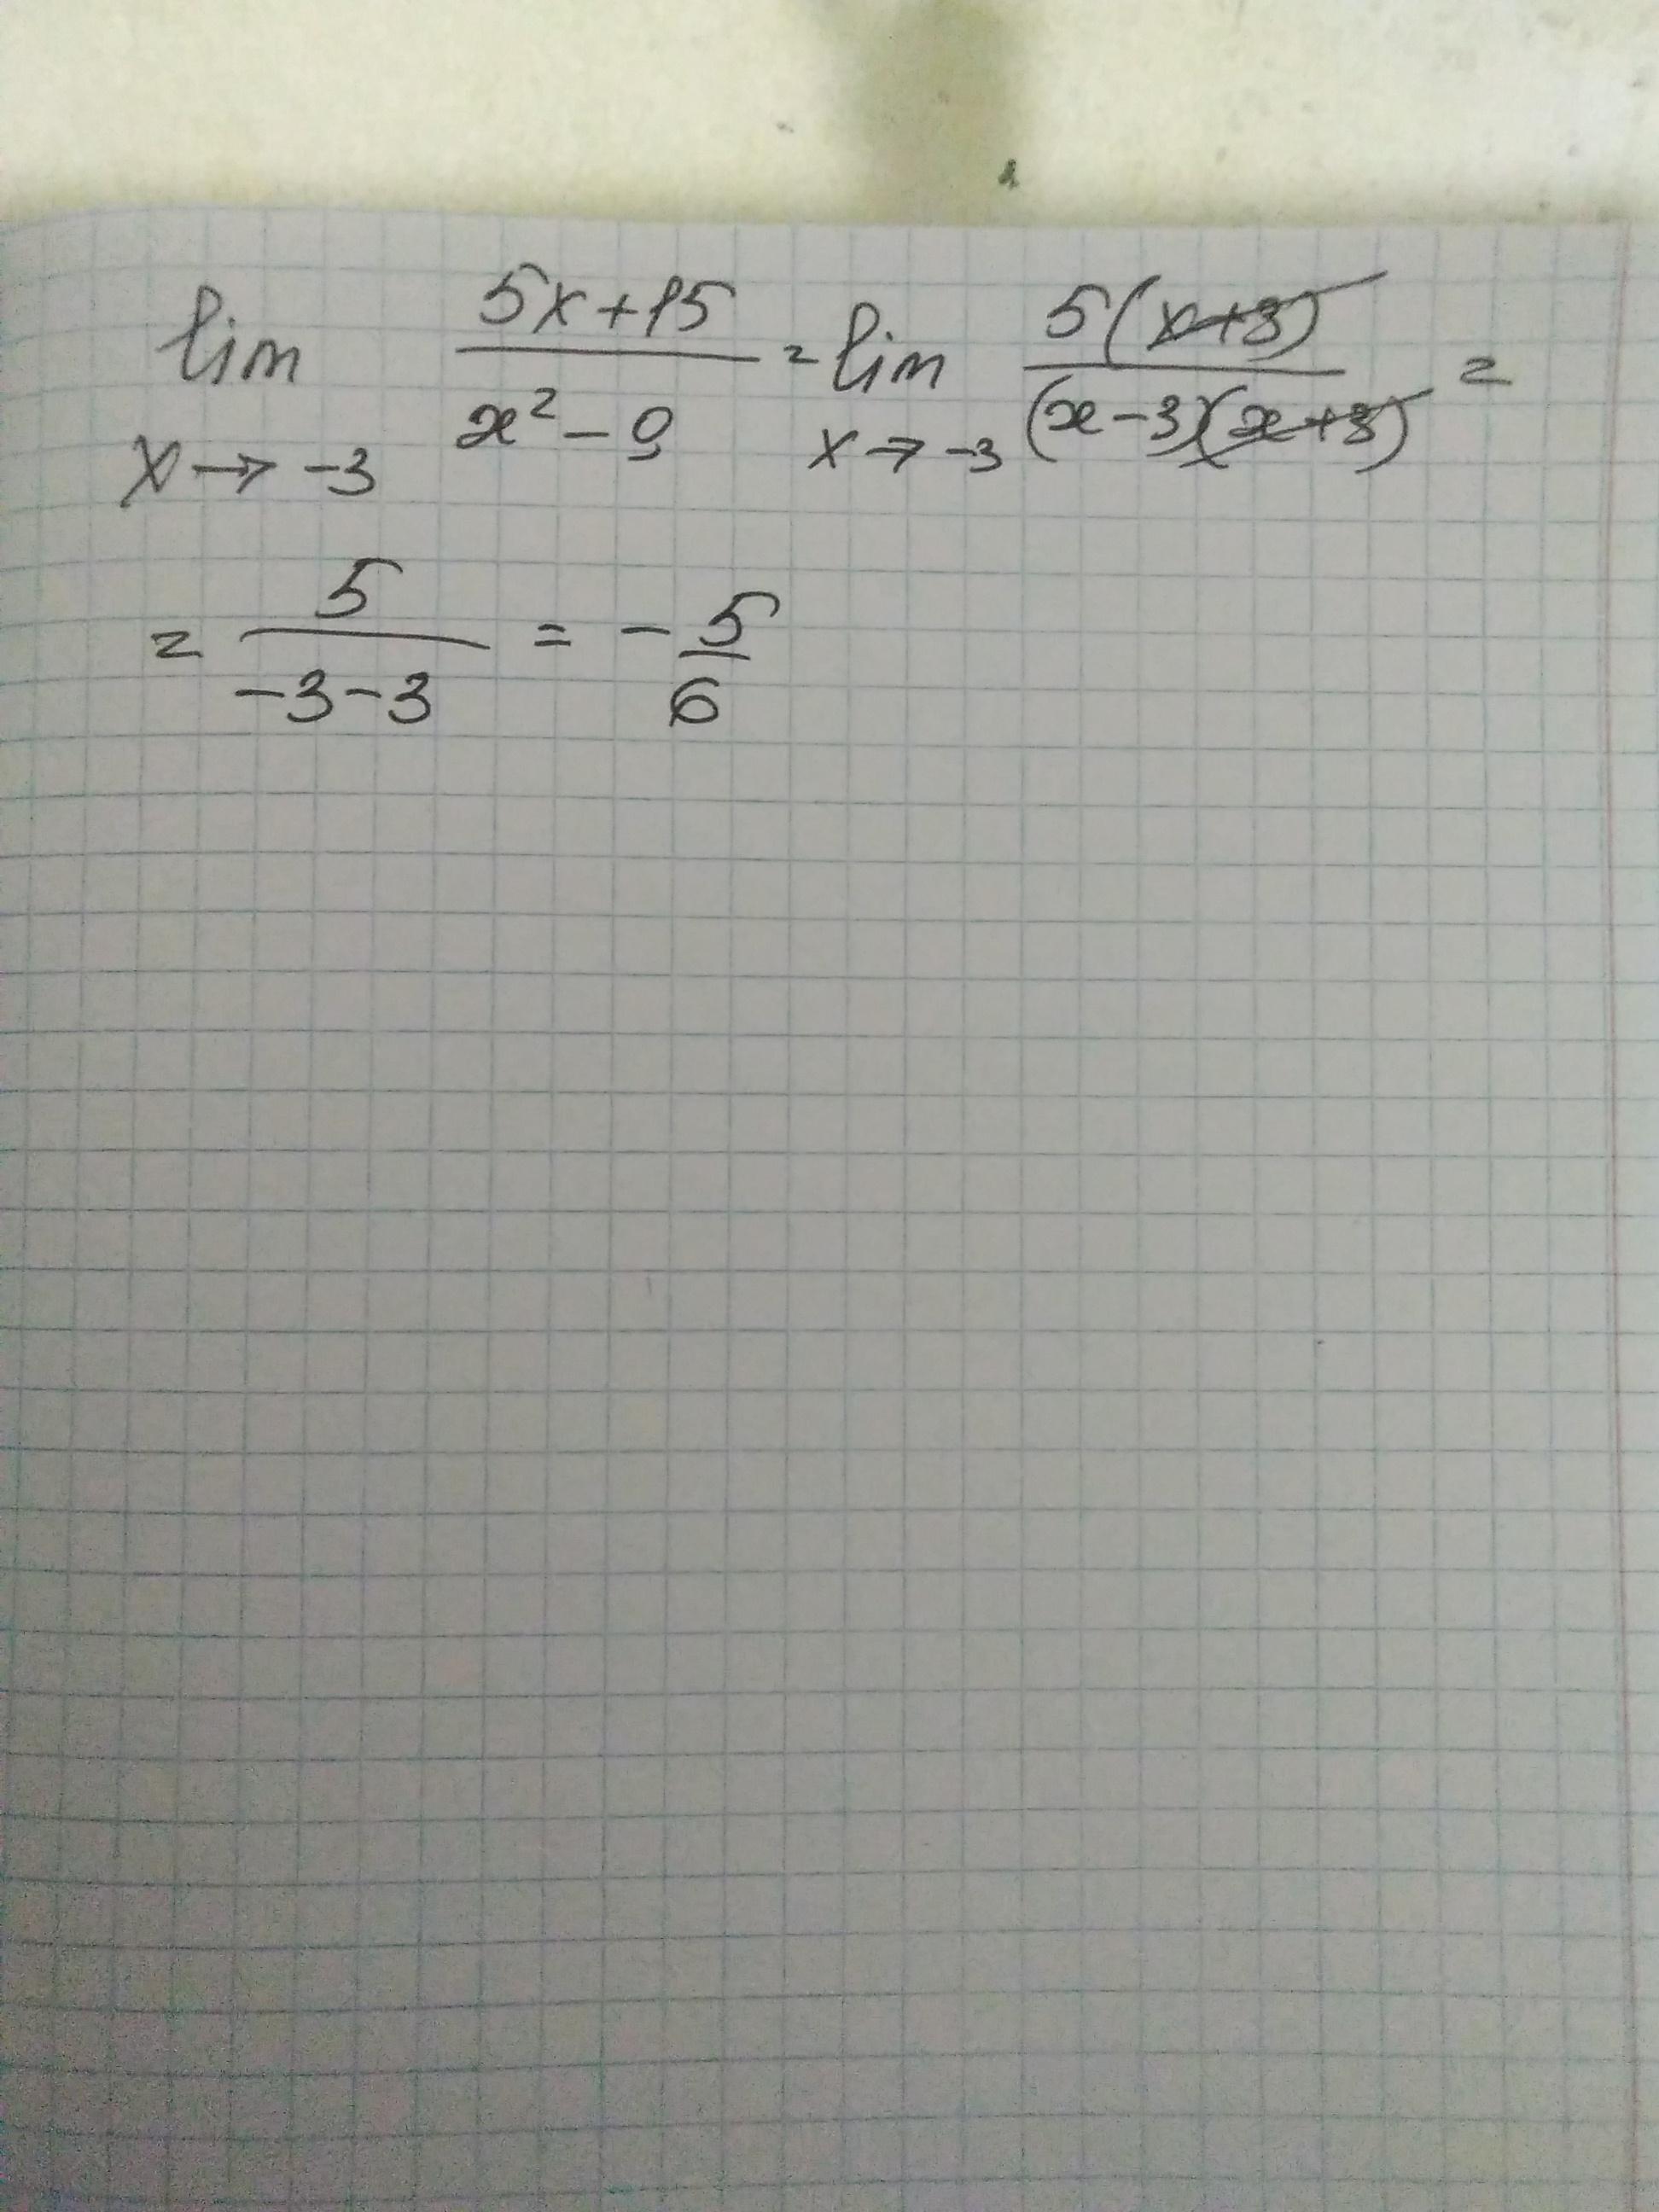 lim 5x+15 / x² - 9 = lim 5(x+3) / (x-3)(x+3) =
x → -3 x → -3
= 5 / -3-3 = - 5 / 6